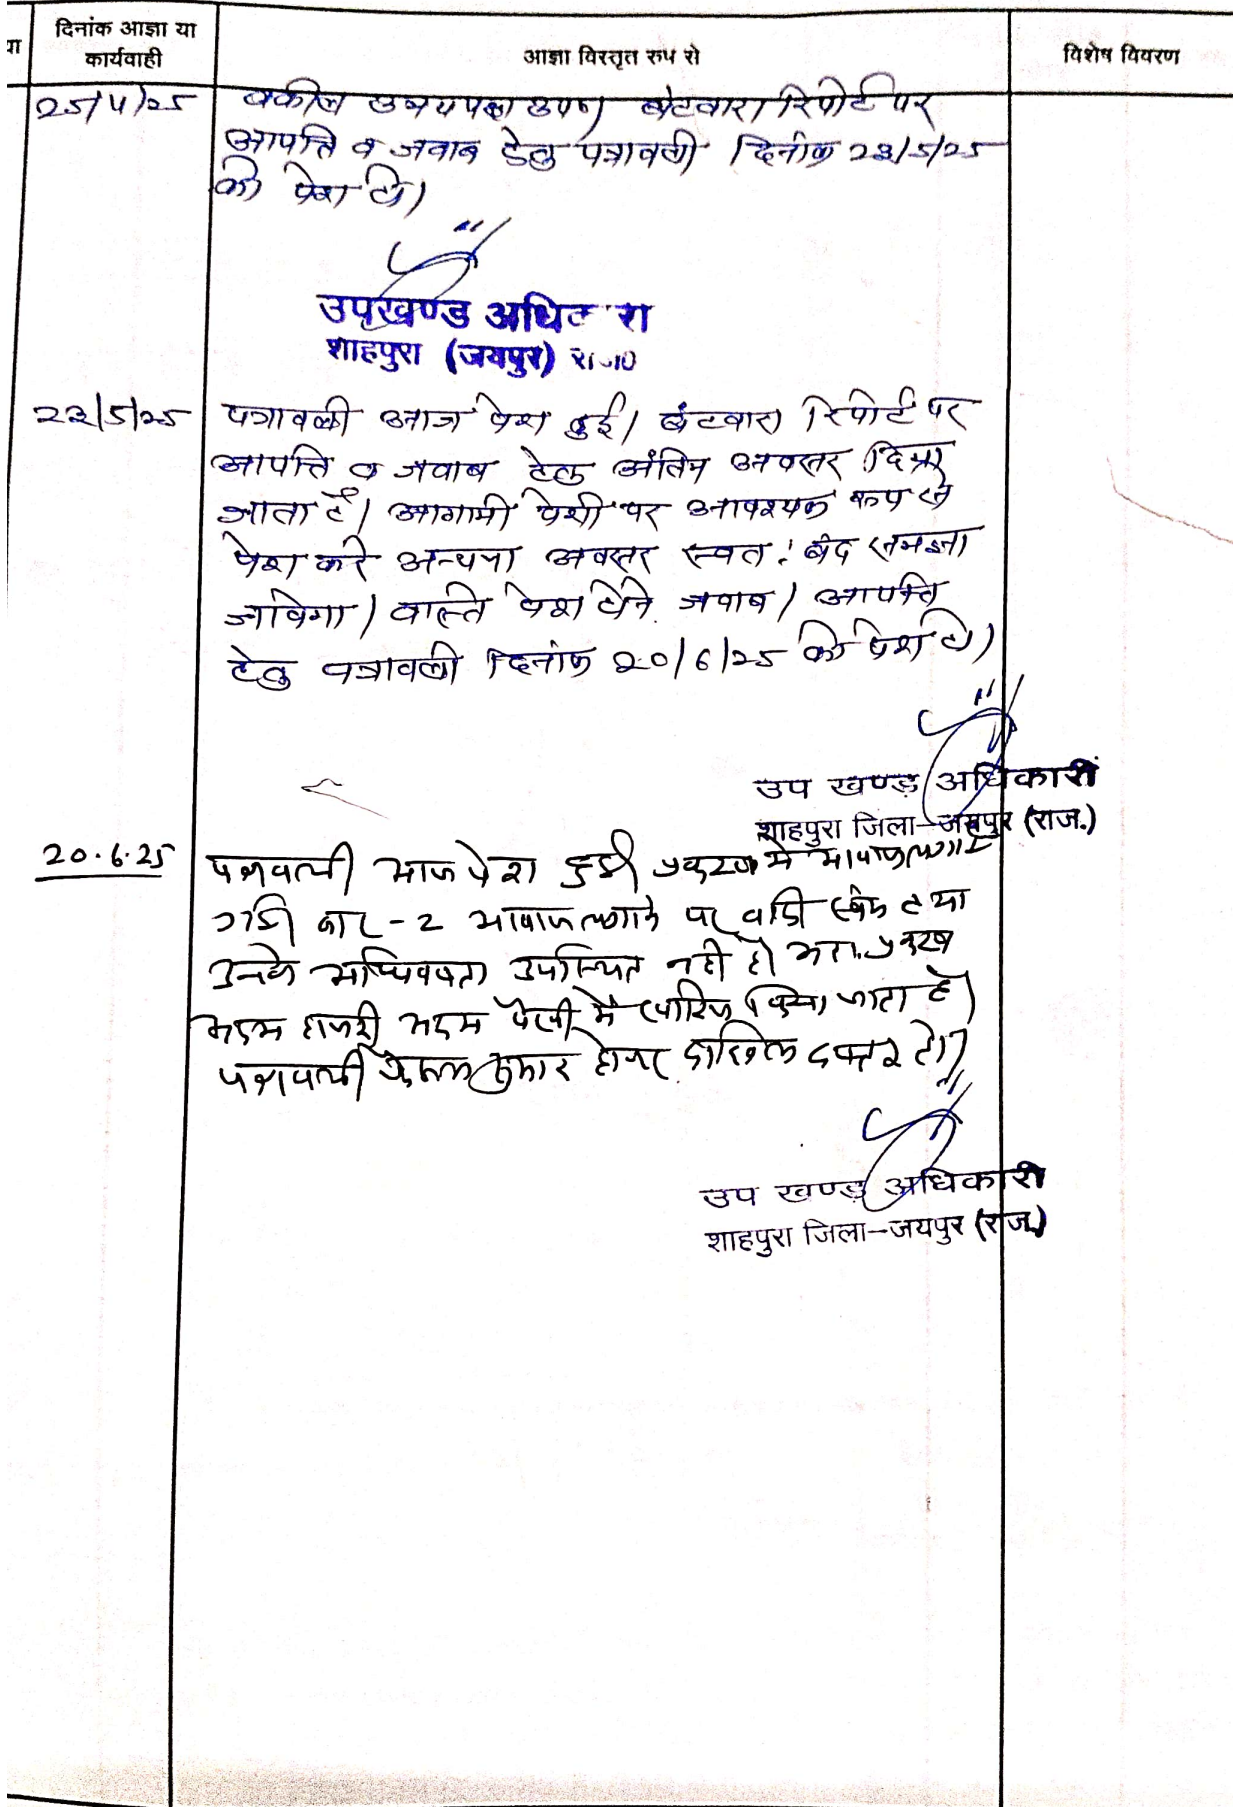 या
दिनांक आज्ञा या
कार्यवाही
आज्ञा विस्तृत रुप से
विशेष विवरण
25/4/25 वकील उभयपक्ष उप0 बंटवारा रिपोर्ट पर
आपत्ति व जवाब हेतु पत्रावली दिनांक 23/5/25
को पेश हो।
उपखण्ड अधिकारी
शाहपुरा (जयपुर) राज0
23/5/25 पत्रावली आज पेश हुई। बंटवारा रिपोर्ट पर
आपत्ति व जवाब हेतु अंतिम अवसर दिया
जाता है। आगामी पेशी पर आवश्यक रूप से
पेश करे अन्यथा अवसर स्वत: बंद समझा
जावेगा। वास्ते पेश होने जवाब/आपत्ति
हेतु पत्रावली दिनांक 20/6/25 को पेश हो।
उप खण्ड अधिकारी
शाहपुरा जिला-जयपुर (राज.)
20.6.25 पत्रावली आज पेश हुई प्रकरण में आवाज लगाई
गई बार-2 आवाज लगाने पर वादी स्वंम तथा
उनके अधिवक्ता उपस्थित नही है। अतः प्रकरण
अदम हाजरी अदम पैरवी में खारिज किया जाता है।
पत्रावली फैसल शुमार होकर दाखिल दफ्तर हो।
उप खण्ड अधिकारी
शाहपुरा जिला-जयपुर (राज.)